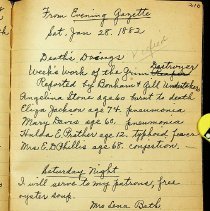 210
From Evening Gazette
Sat. Jan 28. 1882
Death's Doings
Week's Work of the Grim Destroyer
Reported by Bonham & Gill Undertakers
Angelina Stone age 60 burnt to death
Eliza Jackson age 74. pneumonia
Mary Davis age 60. pneumonia
Hulda E. Prather age 12. Typhoid fever
Mrs E. D. Phillis age 68. congestion.
Saturday Night
I will serve to my patrons, free
oyster soup.
Mrs Lena Bath